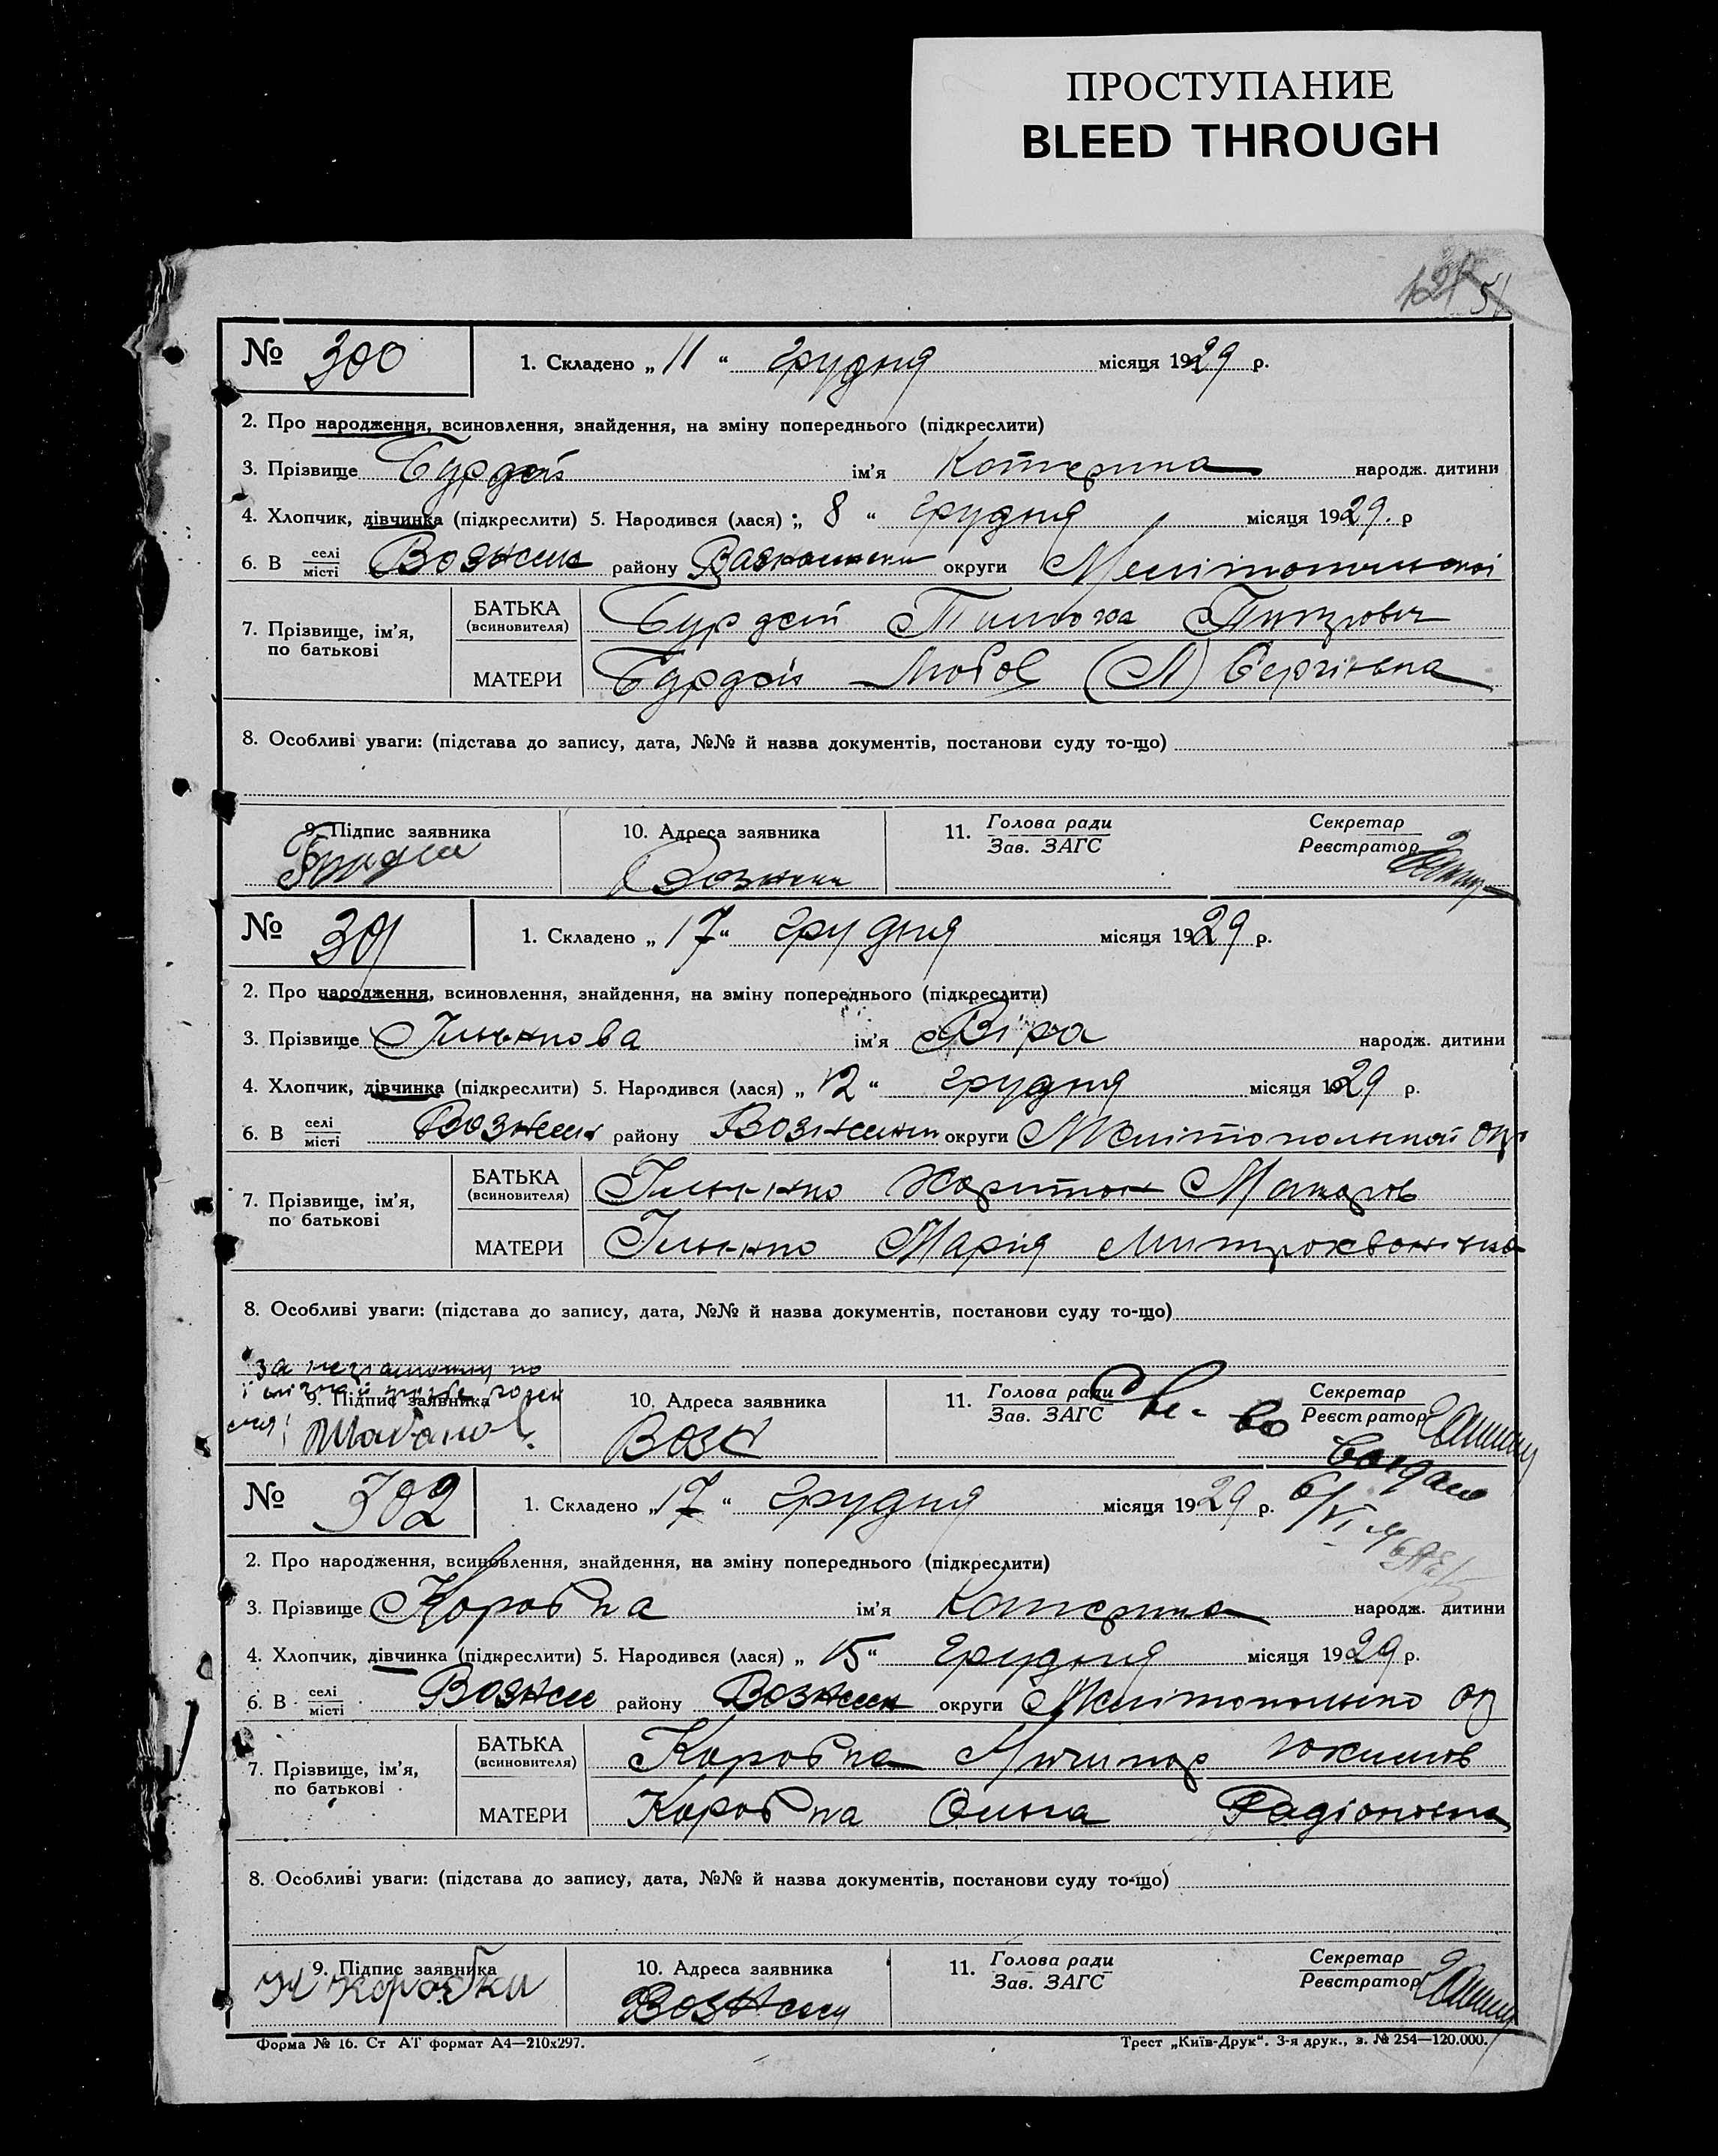 ПРОСТУПАНИЕ
BLEED THROUGH
51
№ 300 1. Складено „ 11 “ грудня місяця 1929 р.
2. Про народження, всиновлення, знайдення, на зміну попереднього (підкреслити)
3. Прізвище Бурдей ім’я Катерина народж. дитини
4. Хлопчик, дівчинка (підкреслити) 5. Народився (лася) „ 8 “ грудня місяця 1929. р
6. В селі місті Вознесен району округи Мелітопільської
7. Прізвище, ім’я, по батькові
БАТЬКА (всиновителя) Бурдей Тимоха Петрович
МАТЕРИ Бурдей Любов (Л) Сергіевна
8. Особливі уваги: (підстава до запису, дата, №№ й назва документів, постанови суду то-що)
9. Підпис заявника 10. Адреса заявника 11. Голова ради Зав. ЗАГС Секретар Реєстратор
Вознесен
№ 301 1. Складено „ 17 “ грудня місяця 1929 р.
2. Про народження, всиновлення, знайдення, на зміну попереднього (підкреслити)
3. Прізвище ім’я Віра народж. дитини
4. Хлопчик, дівчинка (підкреслити) 5. Народився (лася) „ 12 “ грудня місяця 1929 р.
6. В селі місті Вознесен району Вознесен округи Мелітопольської окр
7. Прізвище, ім’я, по батькові
БАТЬКА (всиновителя) Харитон Макаров
МАТЕРИ Марія Митрохвонівна
8. Особливі уваги: (підстава до запису, дата, №№ й назва документів, постанови суду то-що)
за неграмотну по
9. Підпис заявника 10. Адреса заявника 11. Голова ради Зав. ЗАГС Све-во Секретар Реєстратор
Возн
выдано
№ 302 1. Складено „ 17 “ грудня місяця 1929 р. 6/VI
2. Про народження, всиновлення, знайдення, на зміну попереднього (підкреслити)
3. Прізвище Коробка ім’я Катерина народж. дитини
4. Хлопчик, дівчинка (підкреслити) 5. Народився (лася) „ 15 “ грудня місяця 1929 р.
6. В селі місті Вознесе району Вознесен округи Мелітопольско ок
7. Прізвище, ім’я, по батькові
БАТЬКА (всиновителя) Коробка Ничипор Юхимов
МАТЕРИ Коробка Ольга Радіоновна
8. Особливі уваги: (підстава до запису, дата, №№ й назва документів, постанови суду то-що)
9. Підпис заявника 10. Адреса заявника 11. Голова ради Зав. ЗАГС Секретар Реєстратор
Н Коробки Вознесен
Форма № 16. Ст АТ формат А4—210х297. Трест „Київ-Друк“. 3-я друк., з. № 254—120.000.